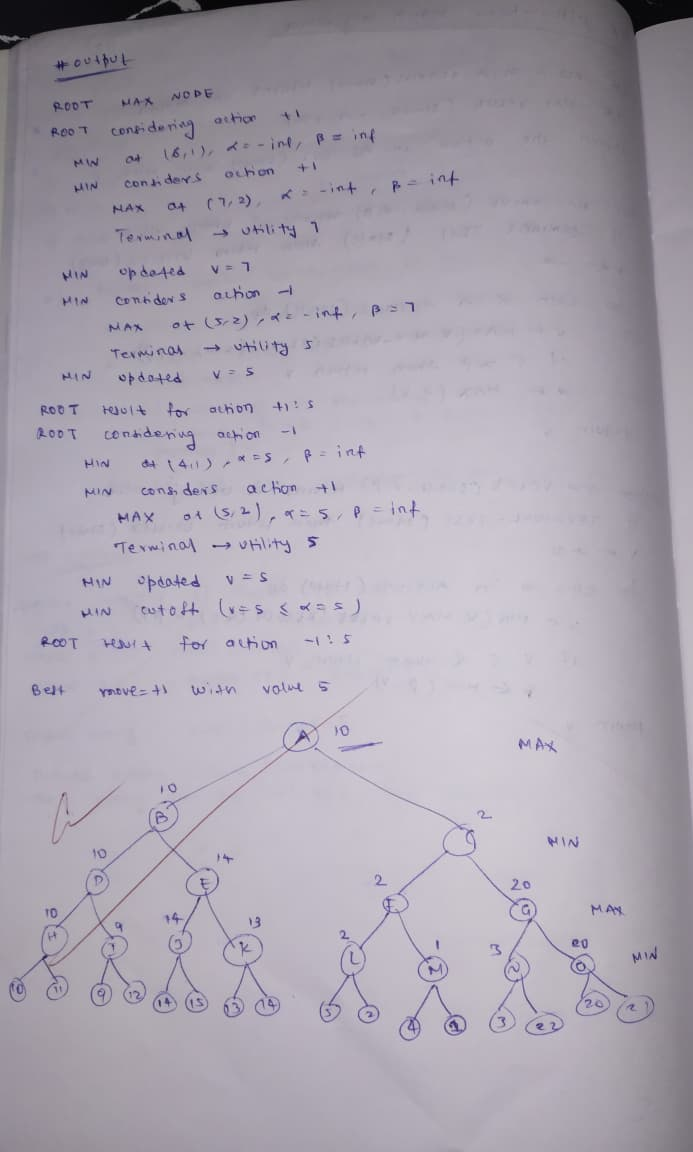 # output
ROOT MAX NODE
ROOT considering action +1
MIN at (6,1), α = -inf, β = inf
MIN considers action +1
MAX at (7,2), α = -inf, β = inf
Terminal → utility 7
MIN updated v = 7
MIN considers action -1
MAX at (5,2), α = -inf, β = 7
Terminal → utility 5
MIN updated v = 5
ROOT result for action +1 : 5
ROOT considering action -1
MIN at (4,1), α = 5, β = inf
MIN considers action +1
MAX at (5,2), α = 5, β = inf
Terminal → utility 5
MIN updated v = 5
MIN cutoff (v = 5 ≤ α = 5)
ROOT result for action -1 : 5
Best move = +1 with value 5
A 10 MAX
10 B 2 C MIN
10 D 14 E 2 F 20 G MAX
10 H 9 I 14 J 13 K 2 L 1 M 3 N 20 O MIN
10 11 9 12 14 15 13 14 5 2 4 1 3 22 20 21